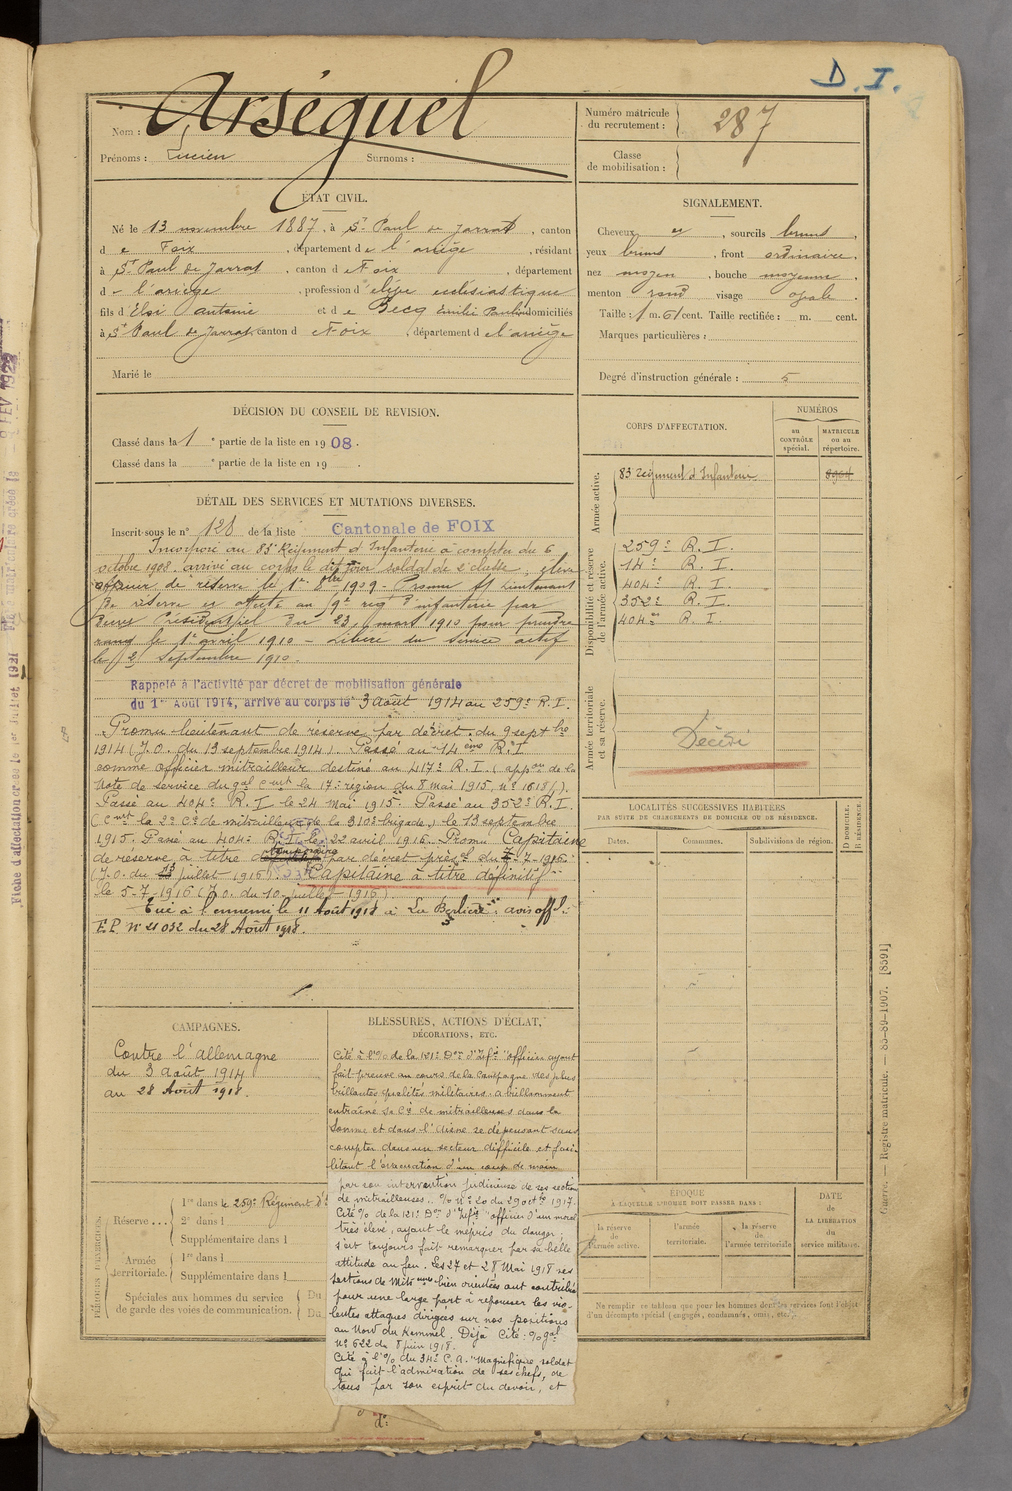 D. I.
Nom : Arséguel
Prénoms : Lucien Surnoms :
Numéro matricule du recrutement : 287
Classe de mobilisation :
ÉTAT CIVIL.
Né le 13 novembre 1887, à St Paul de Jarrat, canton
de Foix, département de l'ariège, résidant
à St Paul de Jarrat, canton d Foix, département
d l'ariège, profession d'élève eclésiastique
fils d'Eloi Antoine et de Becq domiciliés
à St Paul de Jarrat, canton d Foix, département de l'ariège
Marié le
SIGNALEMENT.
Cheveux et, sourcils bruns,
yeux bruns, front ordinaire.
nez moyen, bouche moyenne,
menton rond visage ovale.
Taille : 1 m. 61 cent. Taille rectifiée : m. cent.
Marques particulières :
Degré d'instruction générale : 5
DÉCISION DU CONSEIL DE REVISION.
Classé dans la 1e partie de la liste en 1908.
Classé dans la e partie de la liste en 19 .
DÉTAIL DES SERVICES ET MUTATIONS DIVERSES.
Inscrit sous le n° 128 de la liste Cantonale de FOIX
Incorporé au 83e Régiment d'Infanterie à compter du 6
octobre 1908. arrivé au corps le dit jour soldat de 2e classe, élève
officier de réserve le 1er 8bre 1909 - Promu St lieutenant
de réserve et affecté au 9e reg d'infanterie par
Décret Présidentiel du 23 mars 1910 pour prendre
rang le 1er avril 1910 - Libéré du service actif
le 2 septembre 1910.
Rappelé à l'activité par décret de mobilisation générale
du 1er Août 1914, arrivé au corps le 3 août 1914 au 259e R. I.
Promu lieutenant de réserve par décret du 9 septbre
1914 (J.O. du 13 septembre 1914). Passé au 14ème R. I
comme officier mitrailleur destiné au 417e R. I. (appon de la
Note de service du gal Cmt la 17e région du 8 mai 1915, n° 1618).
Passé au 404e R. I le 24 mai 1915. Passé au 352e R. I.
(Cmt la 2e Cie de mitrailleuses de la 310e brigade) le 13 septembre
1915. Passé au 404e R. I. le 22 avril 1916. Promu Capitaine
de réserve à titre temporaire par décret présel du 7-7-1916
(J.O. du juillet 1916). Capitaine à titre définitif
le 5-7-1916 (J.O. du 10 juillet 1916).
Tué à l'ennemi le 11 Août 1918 à La Berlière, avis offl
E.P. N° 21 032 du 28 Août 1918.
CORPS D'AFFECTATION.
NUMÉROS
au CONTRÔLE spécial.
MATRICULE ou au répertoire.
Armée active.
83 régiment d'Infanterie 8904
Disponibilité et réserve de l'armée active.
259e R. I.
14e R. I.
404e R. I.
352e R. I.
404e R. I.
Armée territoriale et sa réserve.
Décédé
LOCALITÉS SUCCESSIVES HABITÉES
PAR SUITE DE CHANGEMENTS DE DOMICILE OU DE RÉSIDENCE.
Dates. Communes. Subdivisions de région.
D DOMICILE. R RÉSIDENCE.
CAMPAGNES.
Contre l'allemagne
du 3 août 1914
au 28 Août 1918.
BLESSURES, ACTIONS D'ÉCLAT,
DÉCORATIONS, ETC.
Cité à l'% de la 121e Don d'Infie "officier ayant
fait preuve au cours de la Campagne des plus
brillantes qualités militaires. a brillamment
entraîné sa Cie de mitrailleuses dans la
Somme et dans l'Aisne se dépensant sans
compter dans un secteur difficile et faci-
litant l'exécution d'un coup de main
par son intervention judicieuse de ses sections
de mitrailleuses. % n° 20 du 29 octbre 1917.
Cité % de la 121e Don d'Infie "officier d'un moral
très élevé, ayant le mépris du danger;
s'est toujours fait remarquer par sa belle
attitude au feu. Les 27 et 28 Mai 1918 ses
sections de Mitses bien orientées ont contribué
pour une large part à repousser les vio-
lentes attaques dirigées sur nos positions
au Nord du Kemmel. Déjà Cité. % gal
N° 622 du 8 juin 1918.
Cité à l'% du 34e C.A. "Magnifique soldat
qui fait l'admiration de ses chefs, de
tous par son esprit du devoir, et
PÉRIODES D'EXERCICES.
Réserve ...
1re dans le 259e Régiment d'
2e dans l
Supplémentaire dans l
Armée territoriale.
1re dans l
Supplémentaire dans l
Spéciales aux hommes du service
de garde des voies de communication.
Du
Du
ÉPOQUE
À LAQUELLE L'HOMME DOIT PASSER DANS :
la réserve de l'armée active.
l'armée territoriale.
la réserve de l'armée territoriale
DATE de LA LIBÉRATION du service militaire.
Ne remplir ce tableau que pour les hommes dont les services font l'objet
d'un décompte spécial (engagés, condamnés, omis, etc.).
Guerre. — Registre matricule. — 83-89-1907. [8591]